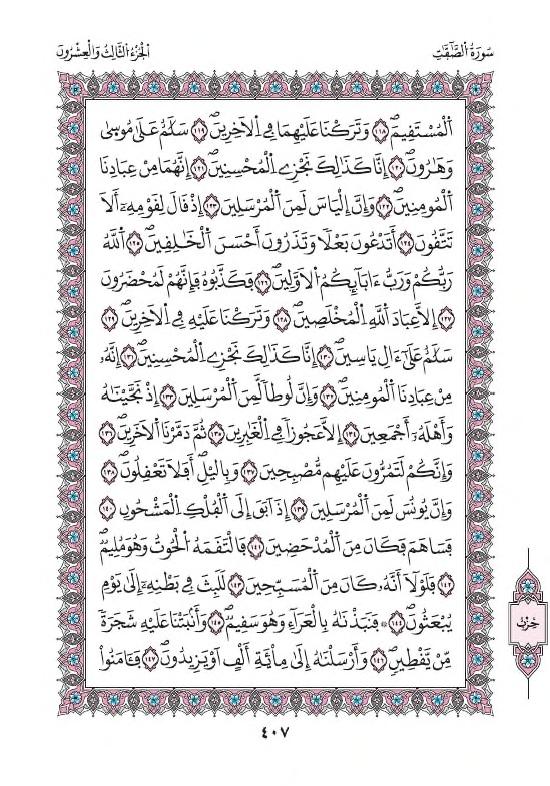 سُورَةُ اُ۬لصَّٰٓفَّٰتِ
اَ۬لْجُزْءُ اُ۬لثَّالِثُ وَالْعِشْرُونَ
اَ۬لْمُسْتَقِيمَۖ ١١٨ وَتَرَكْنَا عَلَيْهِمَا فِے اِ۬لَاخِرِينَۖ ١١٩ سَلَٰمٌ عَلَيٰ مُوس۪يٰ
وَهَٰرُونَۖ ١٢٠ إِنَّا كَذَٰلِكَ نَجْزِے اِ۬لْمُحْسِنِينَۖ ١٢١ إِنَّهُمَا مِنْ عِبَادِنَا
اَ۬لْمُومِنِينَۖ ١٢٢ وَإِنَّ إِلْيَاسَ لَمِنَ اَ۬لْمُرْسَلِينَ ١٢٣ إِذْ قَالَ لِقَوْمِهِۦٓ أَلَا
تَتَّقُونَۖ ١٢٤ أَتَدْعُونَ بَعْلاٗ وَتَذَرُونَ أَحْسَنَ اَ۬لْخَٰلِقِينَۖ ١٢٥ اَ۬للَّهُ
رَبُّكُمْ وَرَبُّ ءَابَآئِكُمُ اُ۬لَاوَّلِينَۖ ١٢٦ فَكَذَّبُوهُ فَإِنَّهُمْ لَمُحْضَرُونَ
١٢٧ إِلَّا عِبَادَ اَ۬للَّهِ اِ۬لْمُخْلَصِينَۖ ١٢٨ وَتَرَكْنَا عَلَيْهِ فِے اِ۬لَاخِرِينَۖ ١٢٩
سَلَٰمٌ عَلَيٰٓ ءَالِ يَاسِينَۖ ١٣٠ إِنَّا كَذَٰلِكَ نَجْزِے اِ۬لْمُحْسِنِينَۖ ١٣١ إِنَّهُۥ
مِنْ عِبَادِنَا اَ۬لْمُومِنِينَۖ ١٣٢ وَإِنَّ لُوطاٗ لَّمِنَ اَ۬لْمُرْسَلِينَ ١٣٣ إِذْ نَجَّيْنَٰهُ
وَأَهْلَهُۥٓ أَجْمَعِينَ ١٣٤ إِلَّا عَجُوزاٗ فِے اِ۬لْغَٰبِرِينَۖ ١٣٥ ثُمَّ دَمَّرْنَا اَ۬لَاخَرِينَۖ ١٣٦
وَإِنَّكُمْ لَتَمُرُّونَ عَلَيْهِم مُّصْبِحِينَ ١٣٧ وَبِاليْلِۖ أَفَلَا تَعْقِلُونَۖ ١٣٨
وَإِنَّ يُونُسَ لَمِنَ اَ۬لْمُرْسَلِينَ ١٣٩ إِذَ اَبَقَ إِلَى اَ۬لْفُلْكِ اِ۬لْمَشْحُونِ ١٤٠
فَسَاهَمَ فَكَانَ مِنَ اَ۬لْمُدْحَضِينَۖ ١٤١ فَالْتَقَمَهُ اُ۬لْحُوتُ وَهُوَ مُلِيمٞۖ
١٤٢ فَلَوْلَآ أَنَّهُۥ كَانَ مِنَ اَ۬لْمُسَبِّحِينَ ١٤٣ لَلَبِثَ فِے بَطْنِهِۦٓ إِلَيٰ يَوْمِ
يُبْعَثُونَۖ ١٤٤ ۞ فَنَبَذْنَٰهُ بِالْعَرَآءِ وَهُوَ سَقِيمٞۖ ١٤٥ وَأَنۢبَتْنَا عَلَيْهِ شَجَرَةٗ
مِّنْ يَّقْطِينٖۖ ١٤٦ وَأَرْسَلْنَٰهُ إِلَيٰ مِاْئَةِ أَلْفٍ اَوْ يَزِيدُونَۖ ١٤٧ فَـَٔامَنُواْ
حِزْبٌ
٤٠٧